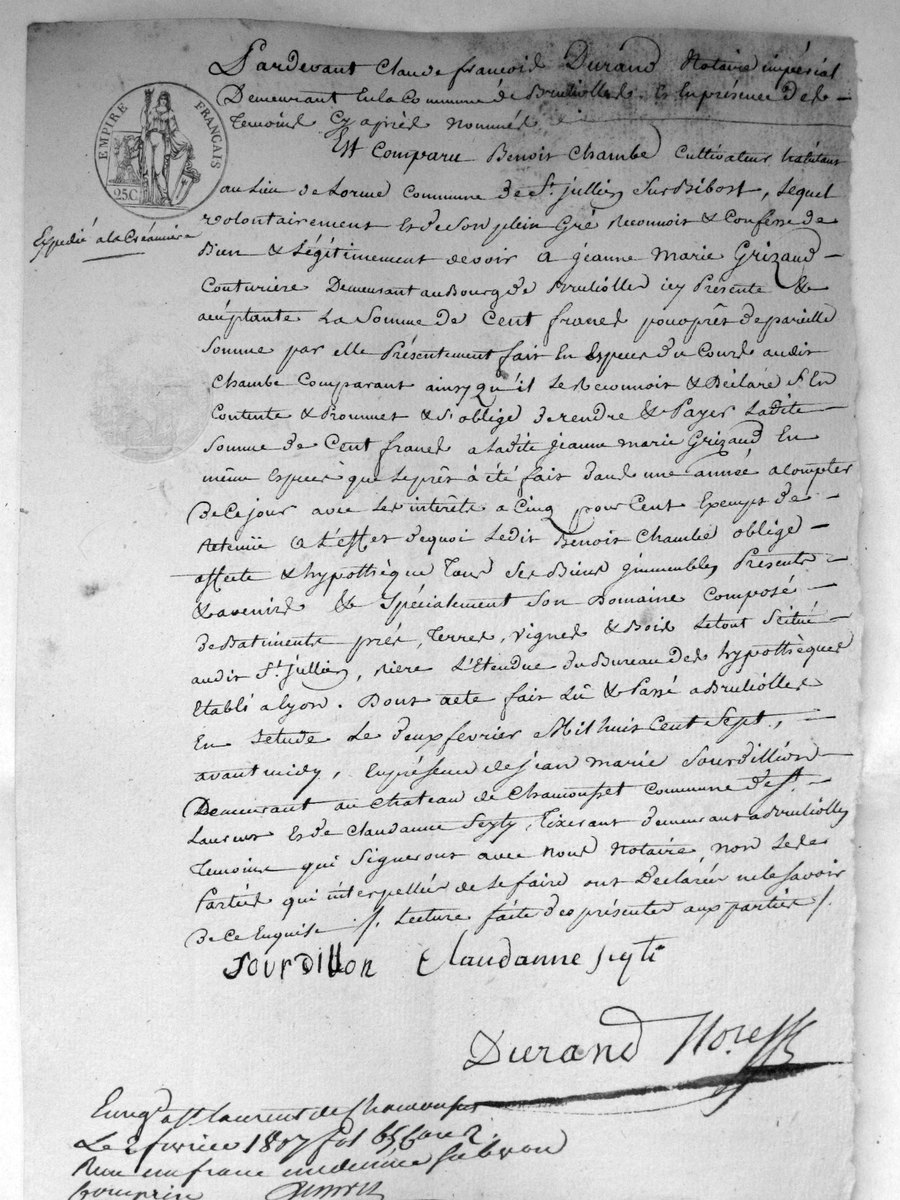 Pardevant Claude françois Durand Notaire impérial
Demeurant En la Commune de Brulliolles. Et En présence des
Temoins Cy après nommés
EMPIRE FRANÇAIS
25C
Est Comparu Benoit Chambe Cultivateur habitant
au Lieu de Lorme Commune de St. jullien Sur Bibost, Lequel
volontairement Et de Son plein Gré Reconnoit & Confesse de
Expedié a la Créancière
Bien & Légitimement devoir a jeanne Marie Grizaud
Couturière Demeurant au Bourg de Brulliolles icy Présente &
acceptante La Somme de Cent francs pour prêt de pareille
Somme par elle Présentement fait En Espèces du Cours audit
Chambe Comparant ainsy qu'il Le Reconnoit & Déclare S'En
Contente & Prommet & S'oblige de rendre & Payer Ladite
Somme de Cent francs a Ladite jeanne marie Grizaud En
même Espèces que Le prêt à été fait dans une année a Compter
de Ce jour avec Les interêts a Cinq pour Cent Exempts de
Retenüe a L'effet de quoi Ledit Benoit Chambe oblige
affecte & hypothèque Tous Ses Biens immeubles Présents
& avenirs & Spécialement Son Domaine Composé
de Batiments prés, Terres, vignes & Bois Le tout Scitué
audit St. jullien, riere L'Etendue du Bureau des hypothèques
Etabli a Lyon. Dont acte fait Lû & Passé a Brulliolles
En L'etude Le deux février Mil huit Cent Sept,
avant midy, En présence de jean Marie Sourdillion
Demeurant au Chateau de Chamousset Commune de St.
Laurent Et de Claudanne Seyty, Tixerant demeurant a Brulliolles
Temoins qui Signeront avec Nous Notaire non Lesdes
Parties qui interpellées de Le faire ont Déclarées ne le Savoir
de Ce Enquise /. Lecture faite des présentes aux parties /.
Sourdillon Claudanne seyti
Durand Nore
Enregé a St Laurent de Chamousset
Le 2 fevrier 1807 fol 65
Reçu un franc
Compris